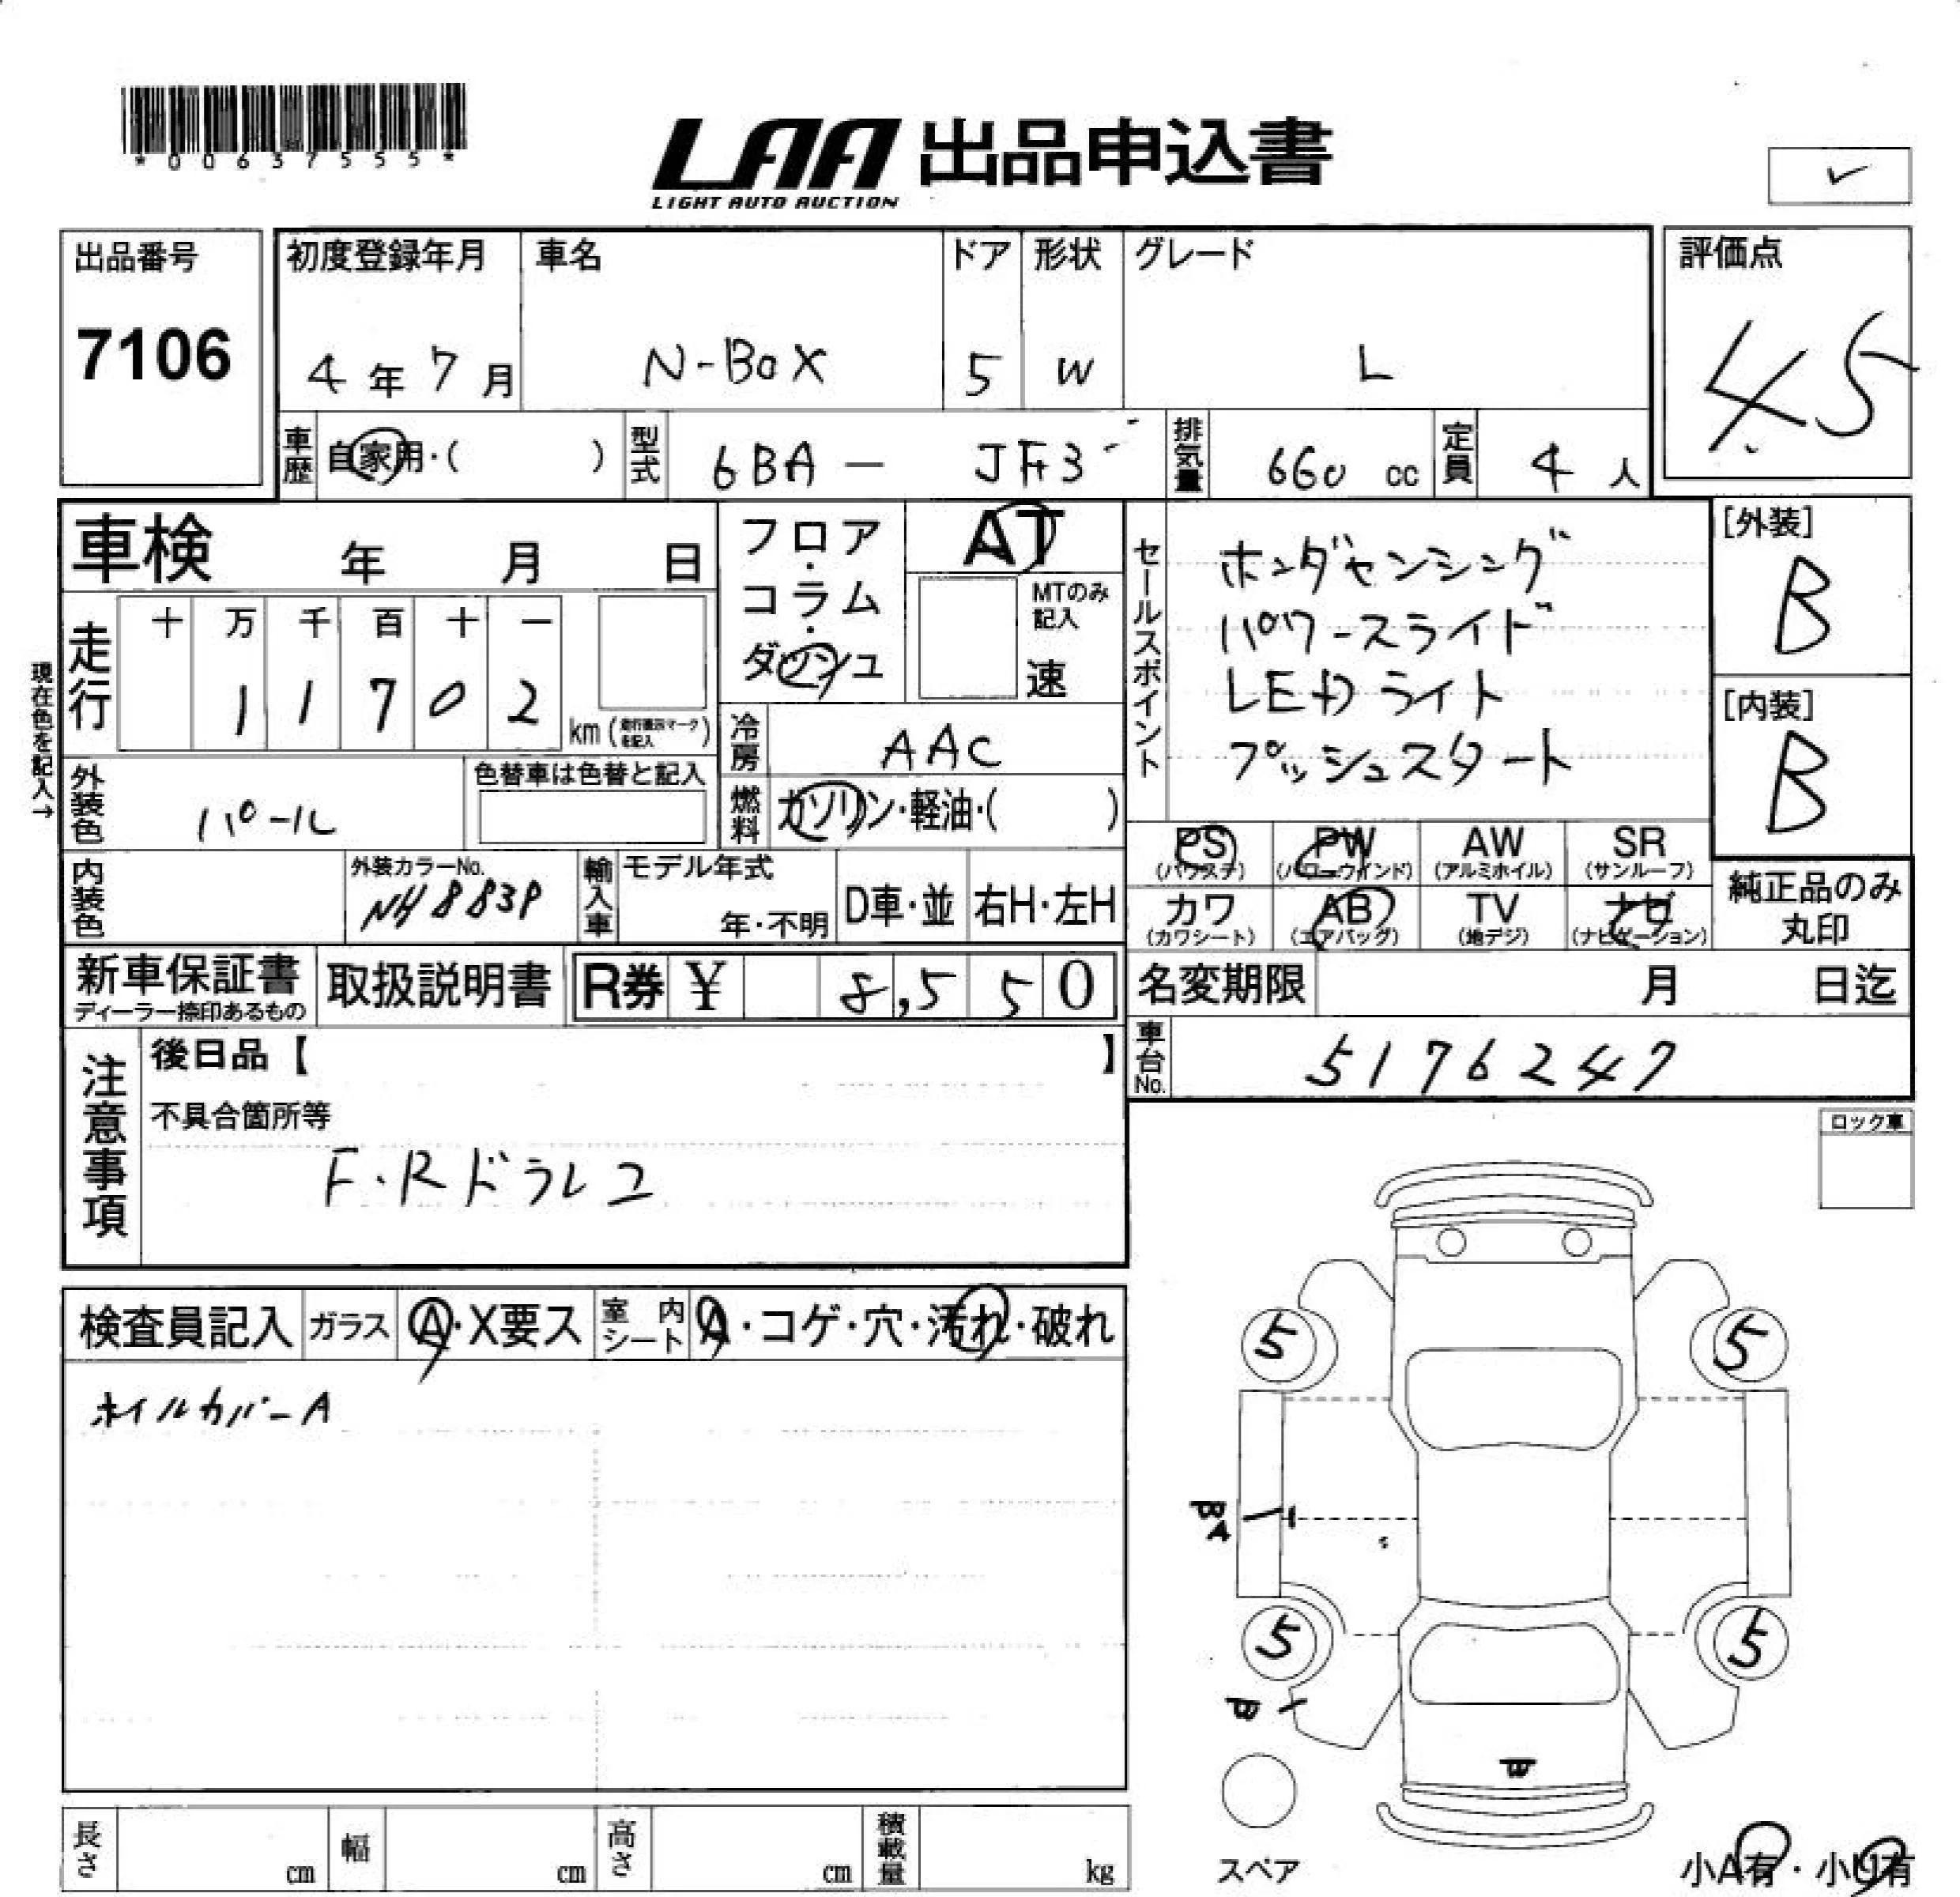 *00637555*
LAA 出品申込書
LIGHT AUTO AUCTION
出品番号
7106
初度登録年月
4年7月
車名
N-BOX
ドア
5
形状
W
グレード
L
評価点
4.5
車歴
自家用・( )
型式
6BA - JF3
排気量
660 cc
定員
4 人
車検 年 月 日
フロア・コラム・ダッシュ
AT
MTのみ記入
速
セールスポイント
ホンダセンシング
パワースライド
LEDライト
プッシュスタート
[外装]
B
[内装]
B
現在色を記入→
走行
十 万 千 百 十 一
1 1 7 0 2
km (走行表示マークを記入)
冷房
AAC
外装色
パール
色替車は色替と記入
燃料
ガソリン・軽油・( )
内装色
外装カラーNo.
NH883P
輸入車
モデル年式
年・不明
D車・並
右H・左H
PS
(パワステ)
PW
(パワーウインド)
AW
(アルミホイル)
SR
(サンルーフ)
カワ
(カワシート)
AB
(エアバッグ)
TV
(地デジ)
ナビ
(ナビゲーション)
純正品のみ
丸印
新車保証書
ディーラー捺印あるもの
取扱説明書
R券 ¥ 8,550
名変期限 月 日迄
車台No.
5176247
注意事項
後日品【 】
不具合箇所等
F・Rドラレコ
ロック車
検査員記入
ガラス
A・X要ス
室内シート
A・コゲ・穴・汚れ・破れ
ホイルカバーA
5
5
BA
5
5
B
B
スペア
小A有・小U有
長さ cm
幅 cm
高さ cm
積載量 kg